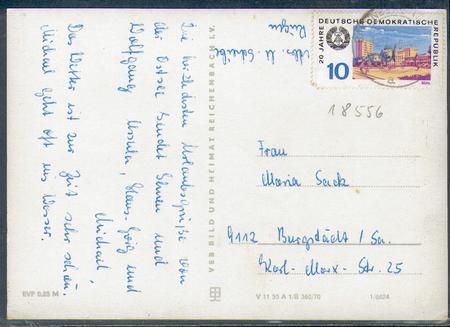 Die herzlichsten Urlaubsgrüße von
der Ostsee sendet Ihnen und
Wolfgang Ursula, Hans-Görg und
Michael.
Das Wetter ist zur Zeit sehr schön.
Michael geht oft ins Wasser.
Abs. U.
Rügen
VERLAG BILD UND HEIMAT REICHENBACH (VOGTL)
20 JAHRE DEUTSCHE DEMOKRATISCHE REPUBLIK
10
SUHL
18556
Frau
Maria Sack
9112 Burgstädt / Sa.
Karl-Marx-Str. 25
EVP 0,25 M
V 11 50 A 1/B 360/70
1/6624